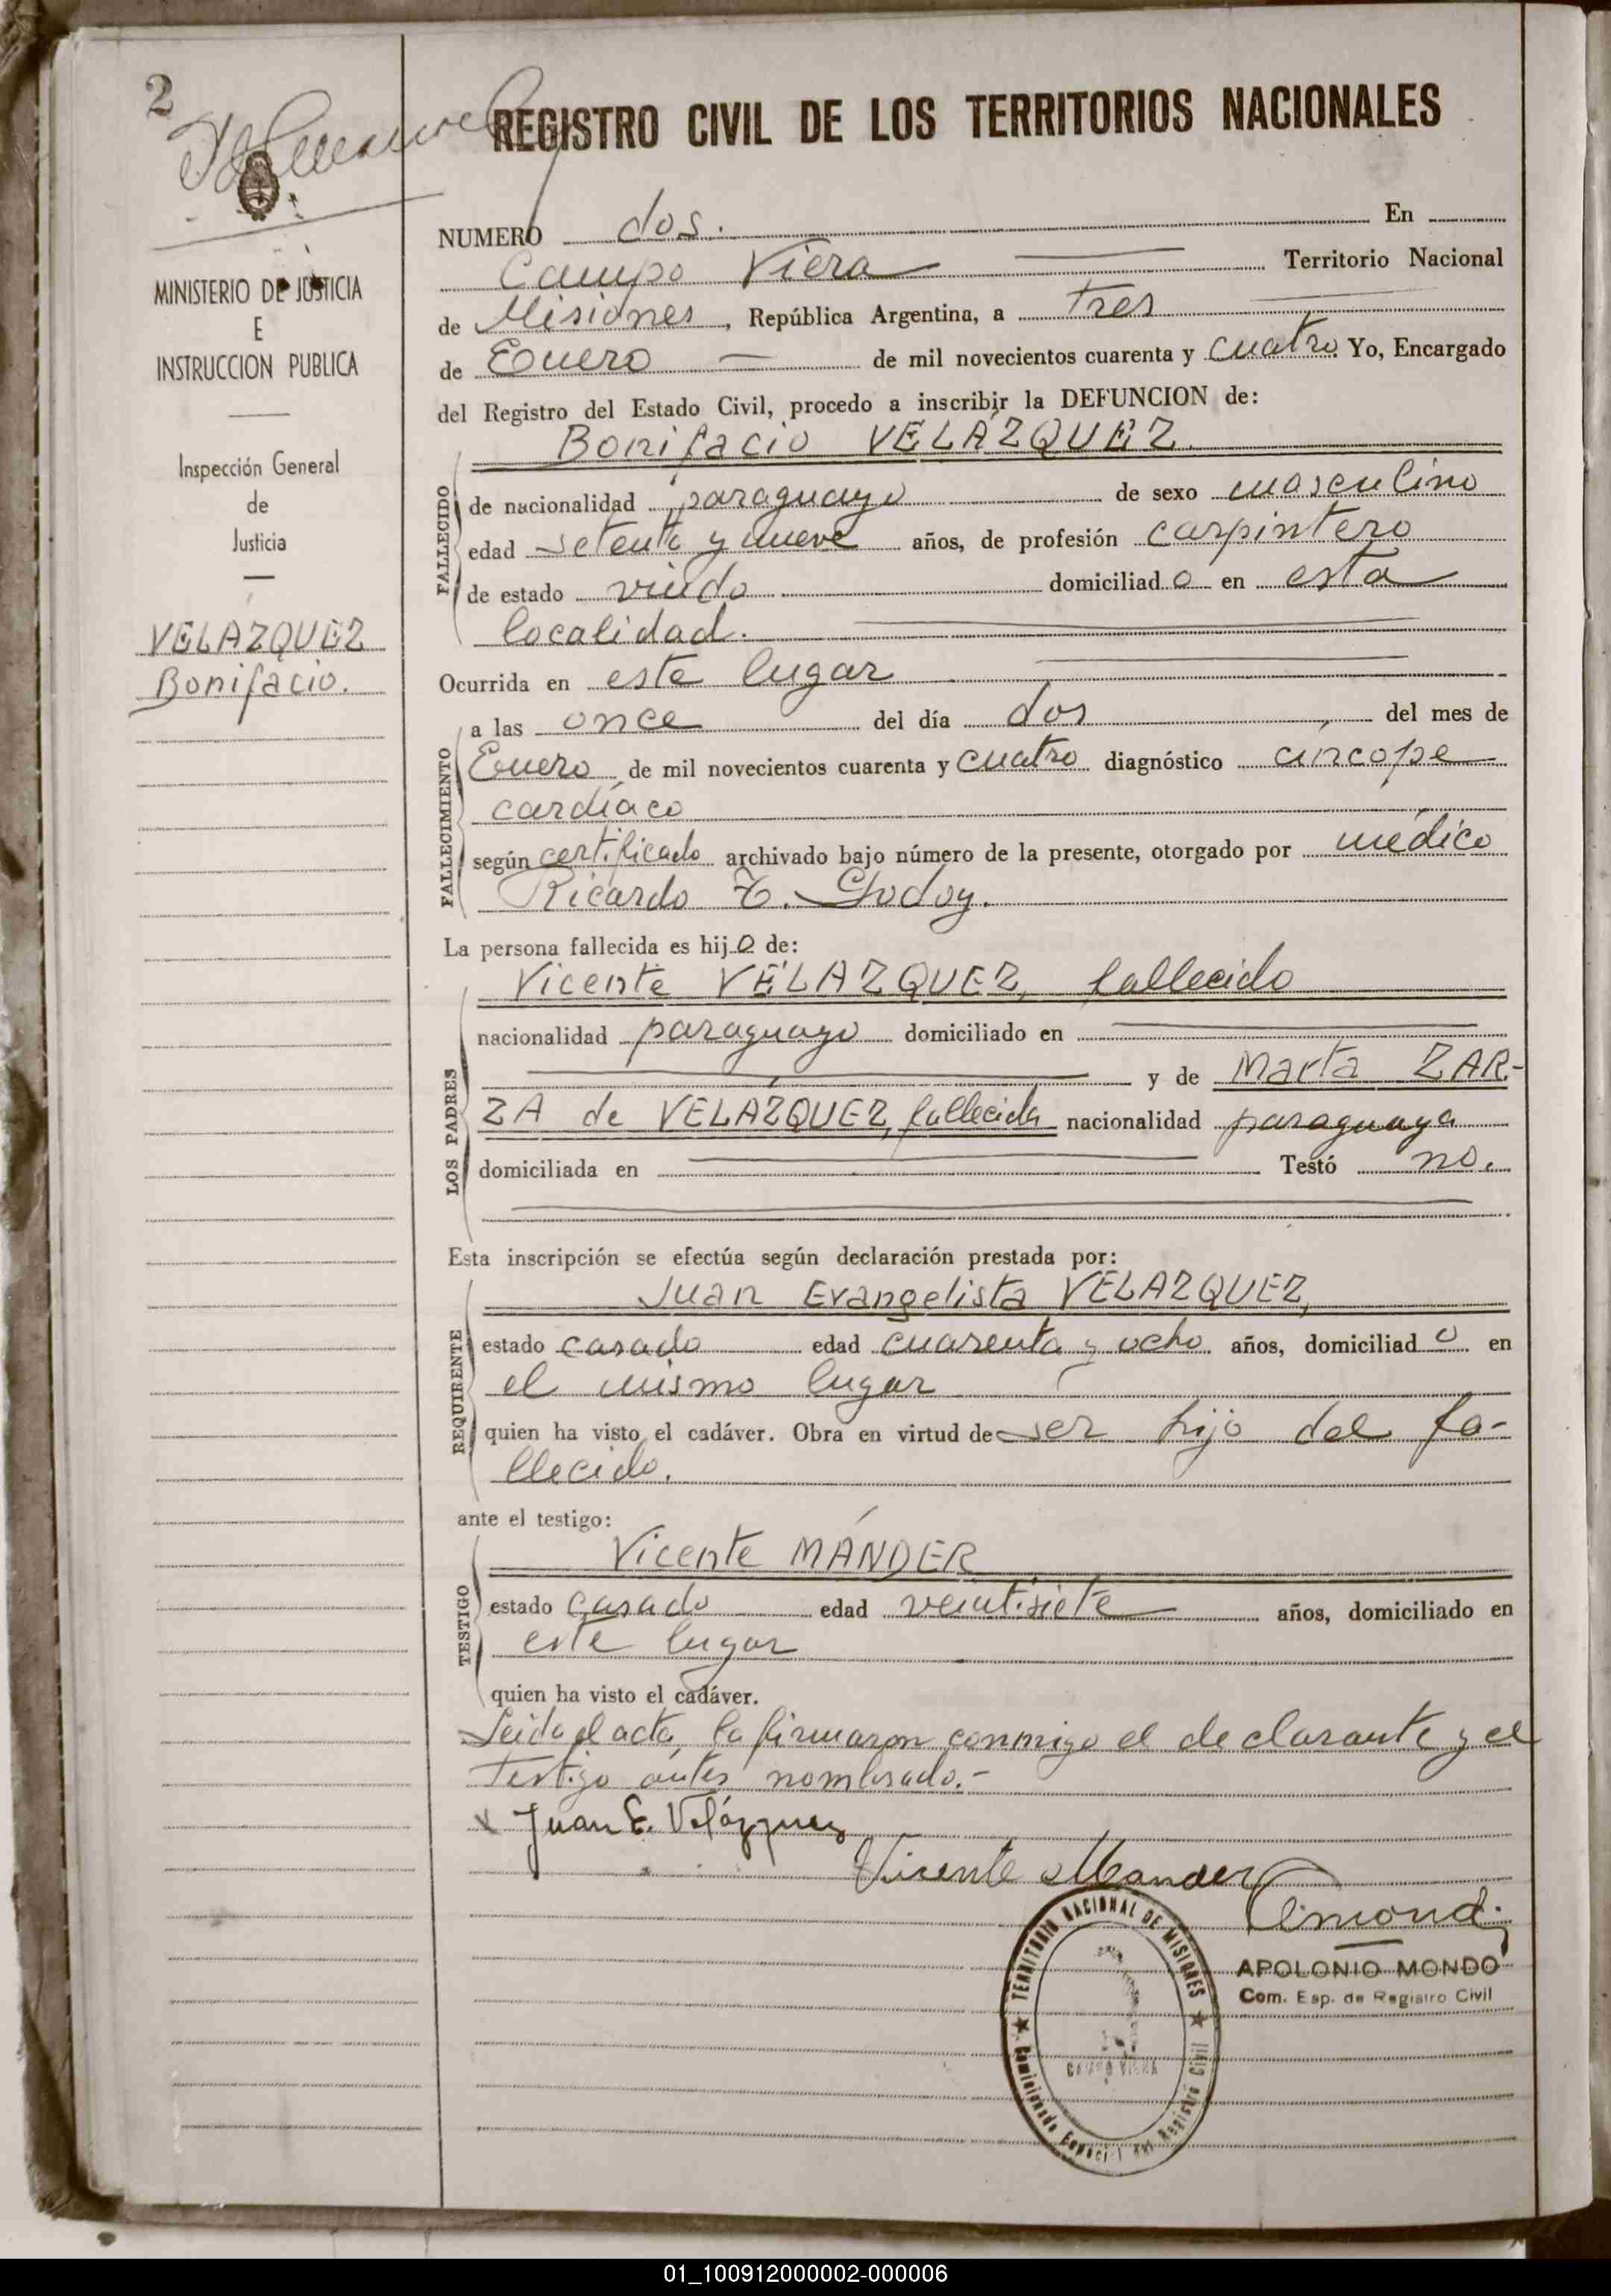 2
REGISTRO CIVIL DE LOS TERRITORIOS NACIONALES
MINISTERIO DE JUSTICIA
E
INSTRUCCION PUBLICA
Inspección General
de
Justicia
VELAZQUEZ
Bonifacio.
NUMERO dos. En
Campo Viera Territorio Nacional
de Misiones, República Argentina, a Tres
de Enero de mil novecientos cuarenta y cuatro Yo, Encargado
del Registro del Estado Civil, procedo a inscribir la DEFUNCION de:
Bonifacio VELÁZQUEZ
FALLECIDO
de nacionalidad paraguayo de sexo masculino
edad setenta y nueve años, de profesión carpintero
de estado viudo domiciliado en esta
localidad.
Ocurrida en este lugar
FALLECIMIENTO
a las once del día dos, del mes de
Enero de mil novecientos cuarenta y cuatro diagnóstico círcope
cardíaco
según certificado archivado bajo número de la presente, otorgado por médico
Ricardo Godoy.
La persona fallecida es hijo de:
LOS PADRES
Vicente VELAZQUEZ, fallecido
nacionalidad paraguayo domiciliado en
y de Marta ZAR-
ZA de VELÁZQUEZ, fallecida nacionalidad paraguaya
domiciliada en Testó no.
Esta inscripción se efectúa según declaración prestada por:
REQUIRENTE
Juan Evangelista VELAZQUEZ,
estado casado edad cuarenta y ocho años, domiciliado en
el mismo lugar
quien ha visto el cadáver. Obra en virtud de ser hijo del fa-
llecido.
ante el testigo:
TESTIGO
Vicente MÁNDER
estado casado edad veintisiete años, domiciliado en
este lugar
quien ha visto el cadáver.
Leida el acta, la firmaron conmigo el declarante y el
testigo antes nombrado.-
x Juan E. Velázquez
Vicente Mander
APOLONIO MONDO
Com. Esp. de Registro Civil
TERRITORIO NACIONAL DE MISIONES
CAMPO VIERA
Comisionado Especial Registro Civil
01_100912000002-000006